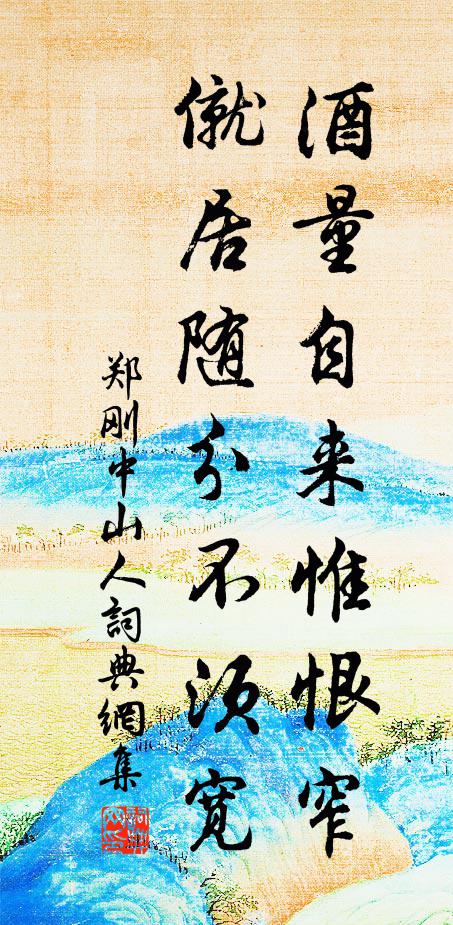 酒量自来惟恨窄
僦居随分不须宽
郑刚中山人詞典網集